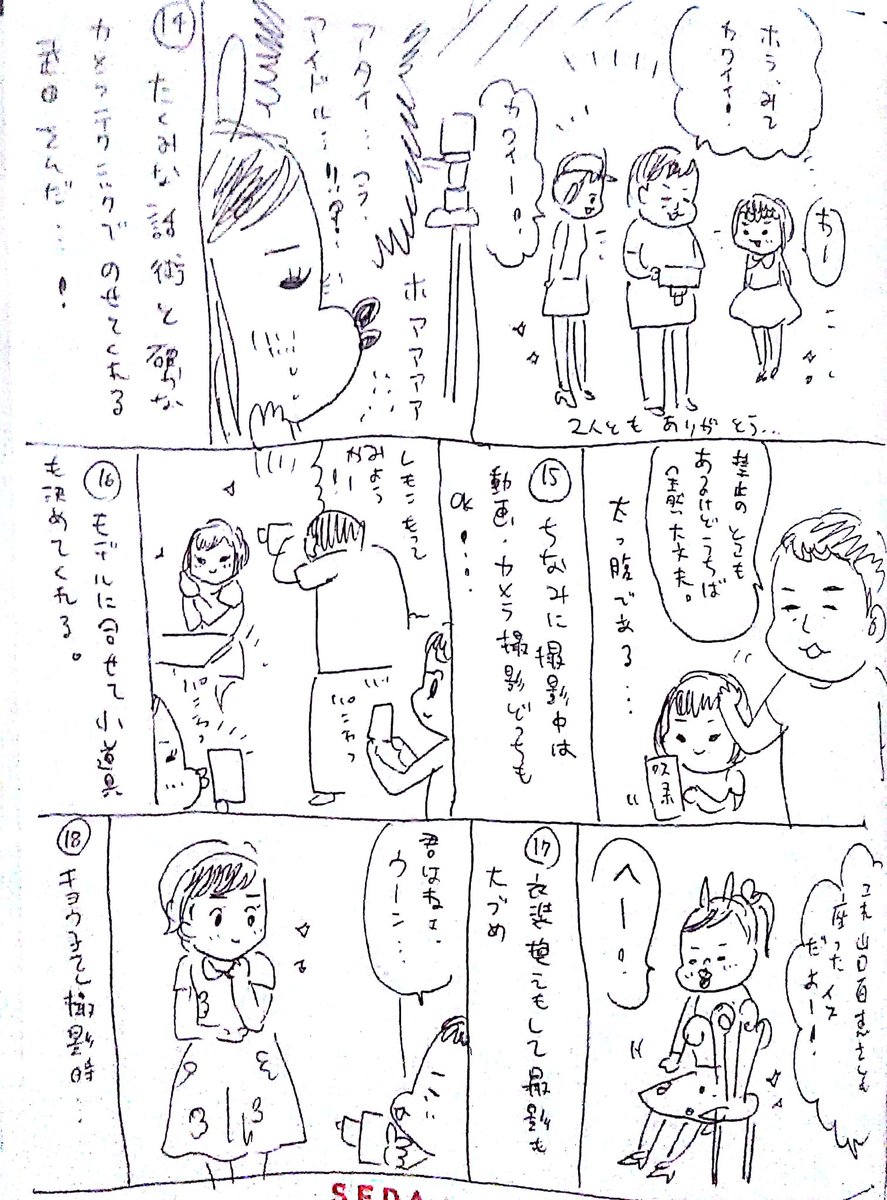 ホラ、みて
カワイイ!
おー
カワイー!
2人とも ありがとう…
アタイ…今
アイドル…
ホアアアア
⑭ たくみな話術と確かな
カメラテクニックでのせてくれる
武田さんだ…!
禁止のとこも
あるけどうちは
全然大丈夫。
太っ腹である…
吸引
⑮ ちなみに撮影中は
動画・カメラ撮影どっちも
OK!…
もって
みよう
かー!
パシャッ
パシャッ
⑯ モデルに合せて小道具
も決めてくれる。
これ山口百恵さんも
座ったイス
だよー!
へー!
⑰ 衣装換えもして撮影も
大づめ
君はねェ、
ウーン…
⑱ キョウ子さん撮影時…
SEDA